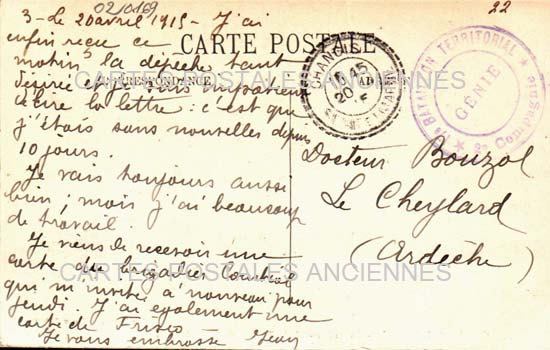 02/0169
22
3 - Le 20 avril 1915 - J'ai
enfin reçu ce
matin la dépêche tant
désirée et je suis impatient
lire ta lettre : c'est que
j'étais sans nouvelles depuis
10 jours.
Je vais toujours aussi
bien ; mais j'ai beaucoup
de travail.
Je viens de recevoir une
carte du brigadier
qui m'invite à nouveau pour
jeudi. J'ai également une
carte de
Je vous embrasse Jean
CARTE POSTALE
CORRESPONDANCE
20
BATAILLON TERRITORIAL
GÉNIE
Compagnie
Docteur Bouzol
Le Cheylard
(Ardèche)
CARTES POSTALES ANCIENNES
CARTES POSTALES ANCIENNES